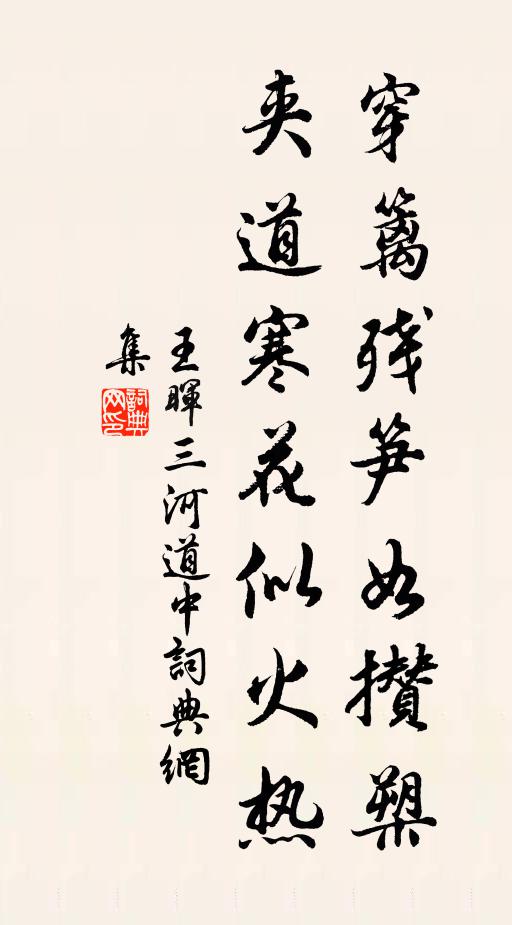 穿篱残笋如攒槊
夹道寒花似火热
王晖三河道中詞典網
集
詞典
网印